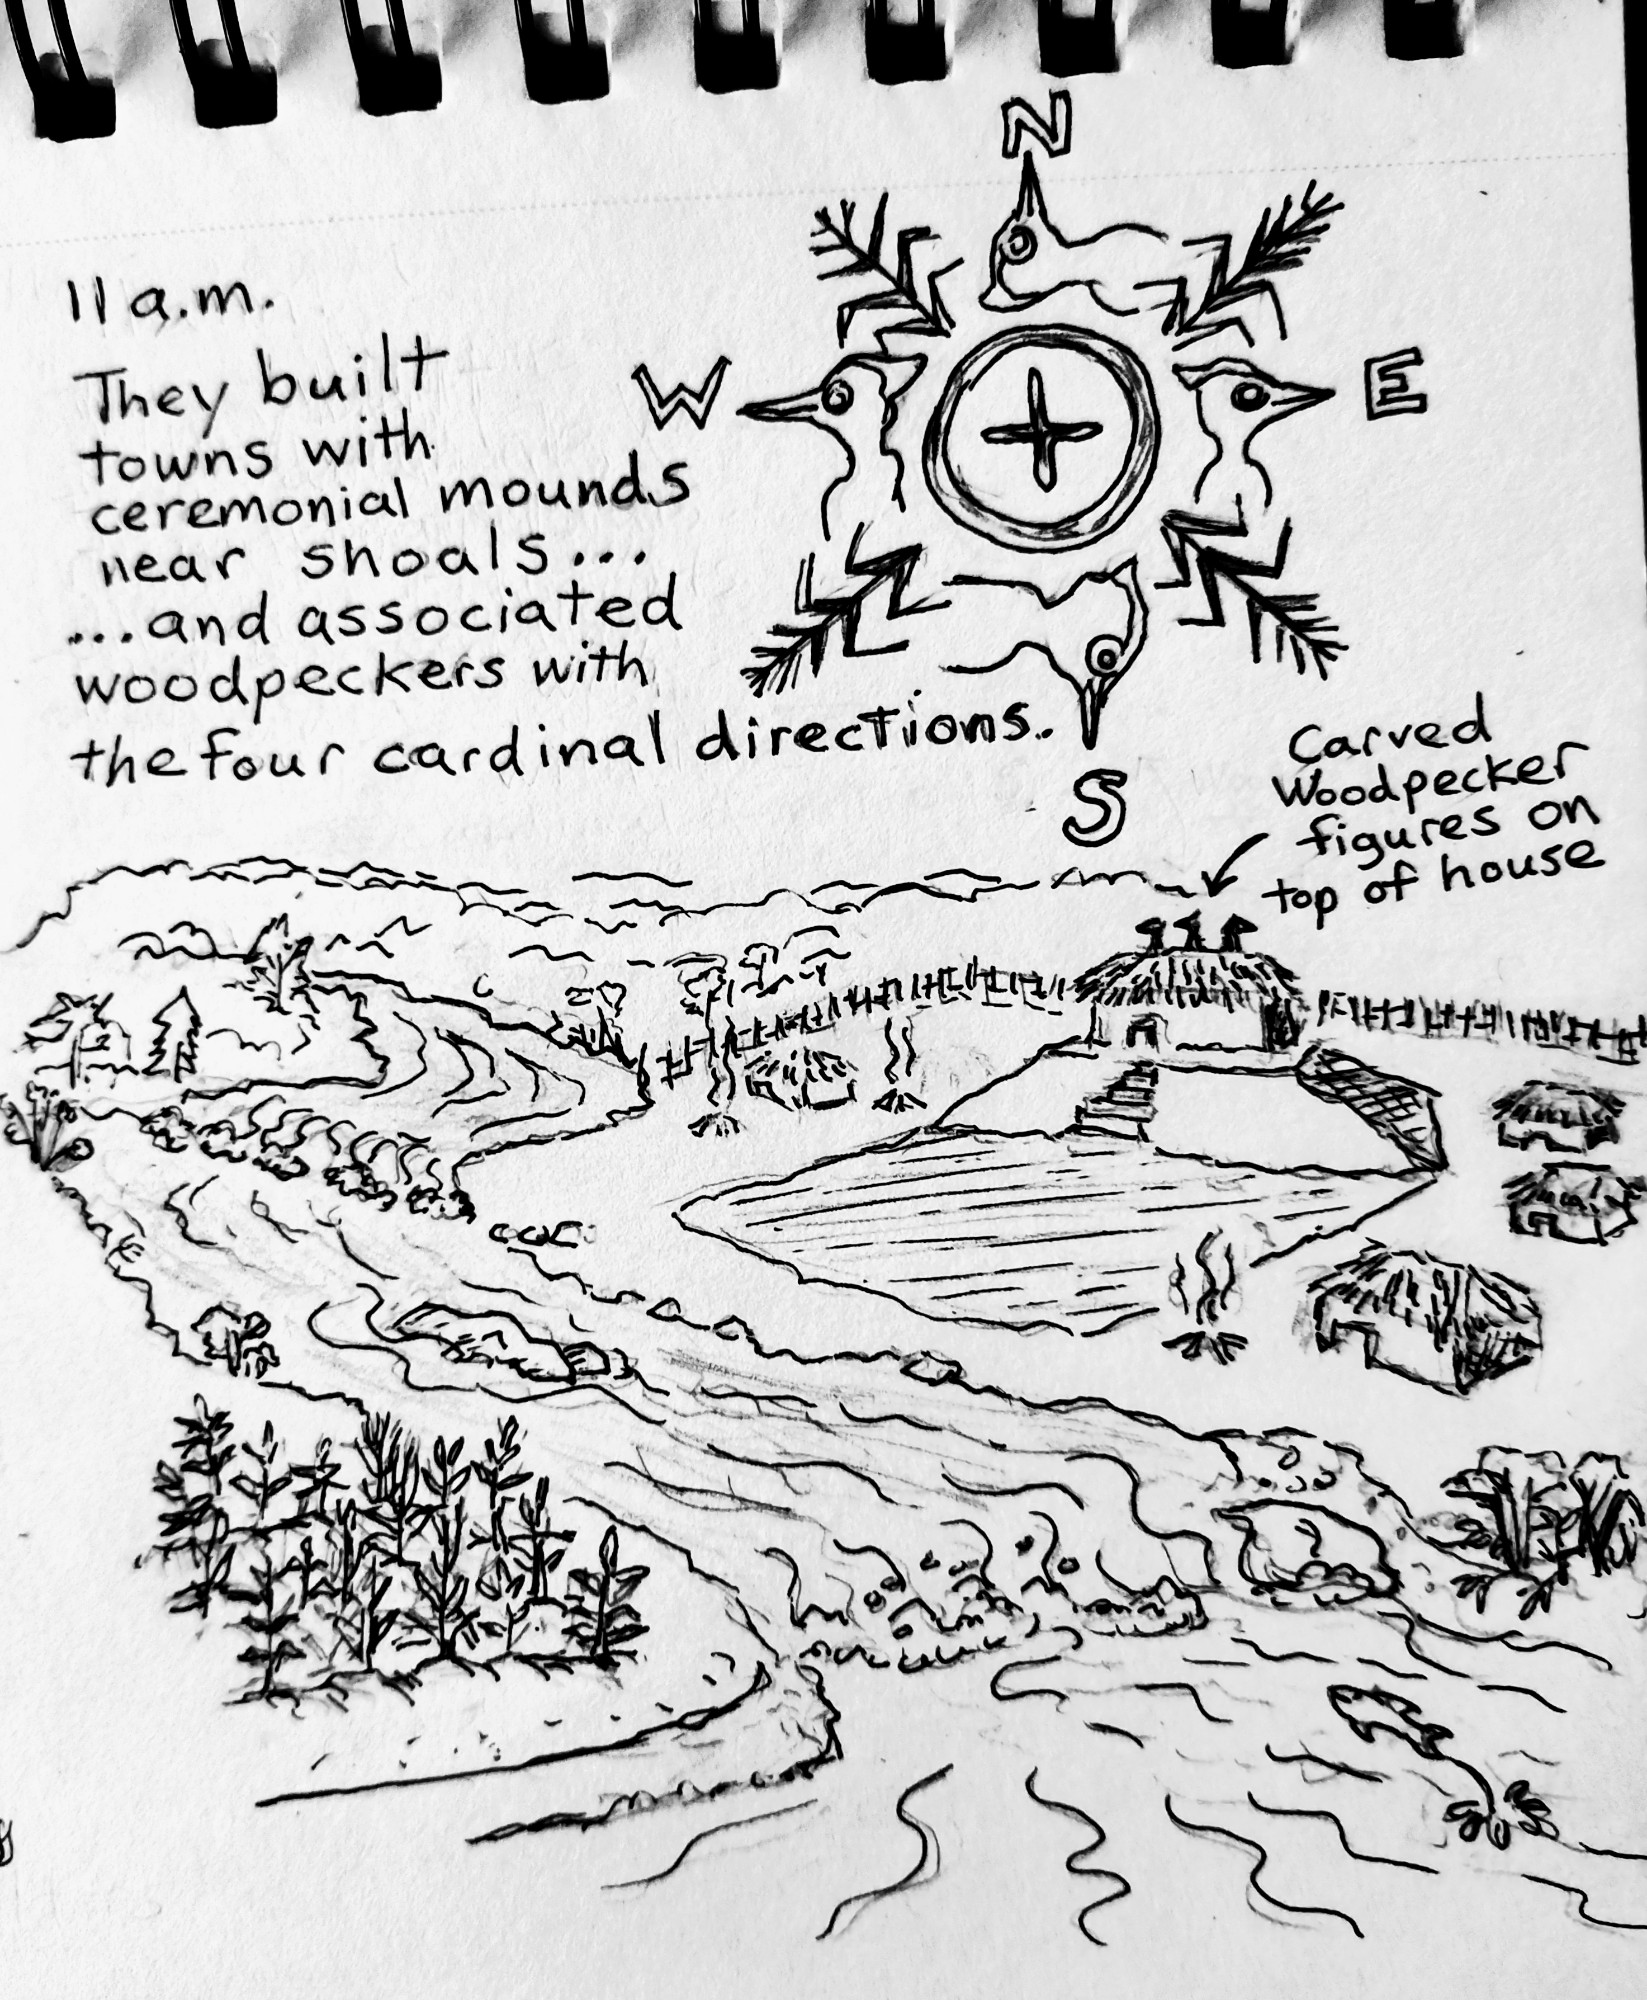 N
11 a.m.
They built
towns with
W
E
ceremonial mounds
near shoals...
...and associated
woodpeckers with
the four cardinal directions.
S
Carved
Woodpecker
figures on
top of house